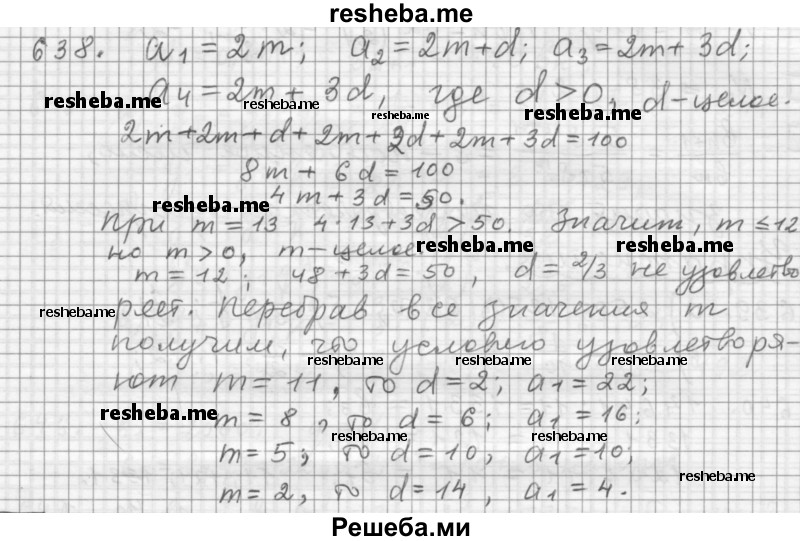 resheba.me
638. a₁ = 2m; a₂ = 2m+d; a₃ = 2m+ 3d;
a₄ = 2m + 3d, где d > 0, d - целое.
resheba.me resheba.me resheba.me resheba.me
2m+2m+d+2m+2d+2m+3d=100
8m + 6d = 100
4m + 3d = 50.
resheba.me
При m = 13 4·13+3d > 50. Значит, m ≤ 12
но m > 0, m - целое.
resheba.me resheba.me
m = 12; 48 + 3d = 50, d = 2/3 не удовлетво
ряет. Перебрав все значения m
resheba.me
получим, что условию удовлетворя-
resheba.me resheba.me resheba.me
ют m = 11, то d = 2; a₁ = 22;
resheba.me
m = 8, то d = 6; a₁ = 16;
resheba.me resheba.me
m = 5, то d = 10, a₁ = 10;
resheba.me
m = 2, то d = 14, a₁ = 4.
Решеба.ми